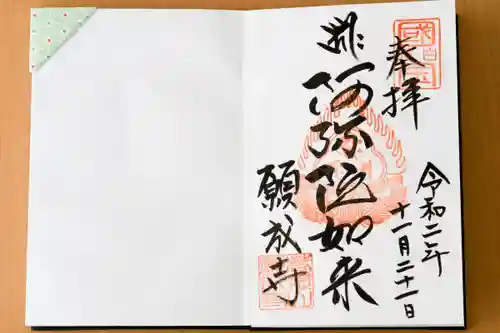 奉拝
令和二年
十一月二十一日
阿弥陀如来
願成寺